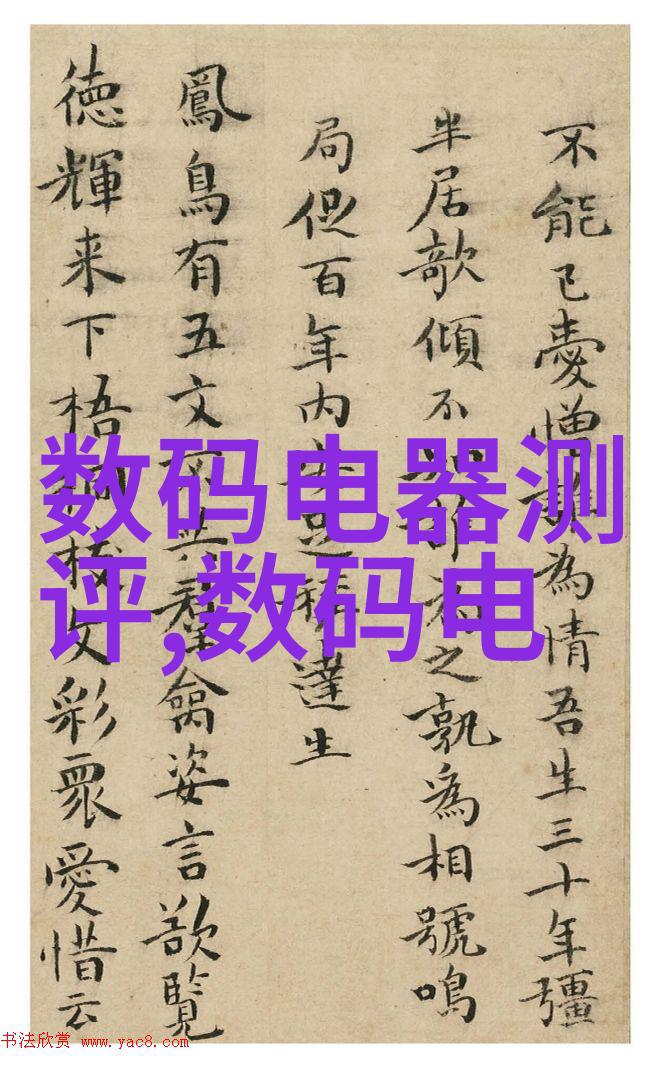 不能已憂憎為情吾生三十年彊
半居欹傾不之孰為相號鳴
局促百年内足稱達生
鳳鳥有五文不與羣禽姿言欲覽
徳輝来下梧桐枝文彩眾愛惜云
数码电器测
评,数码电
书法欣赏 www.yac8.com